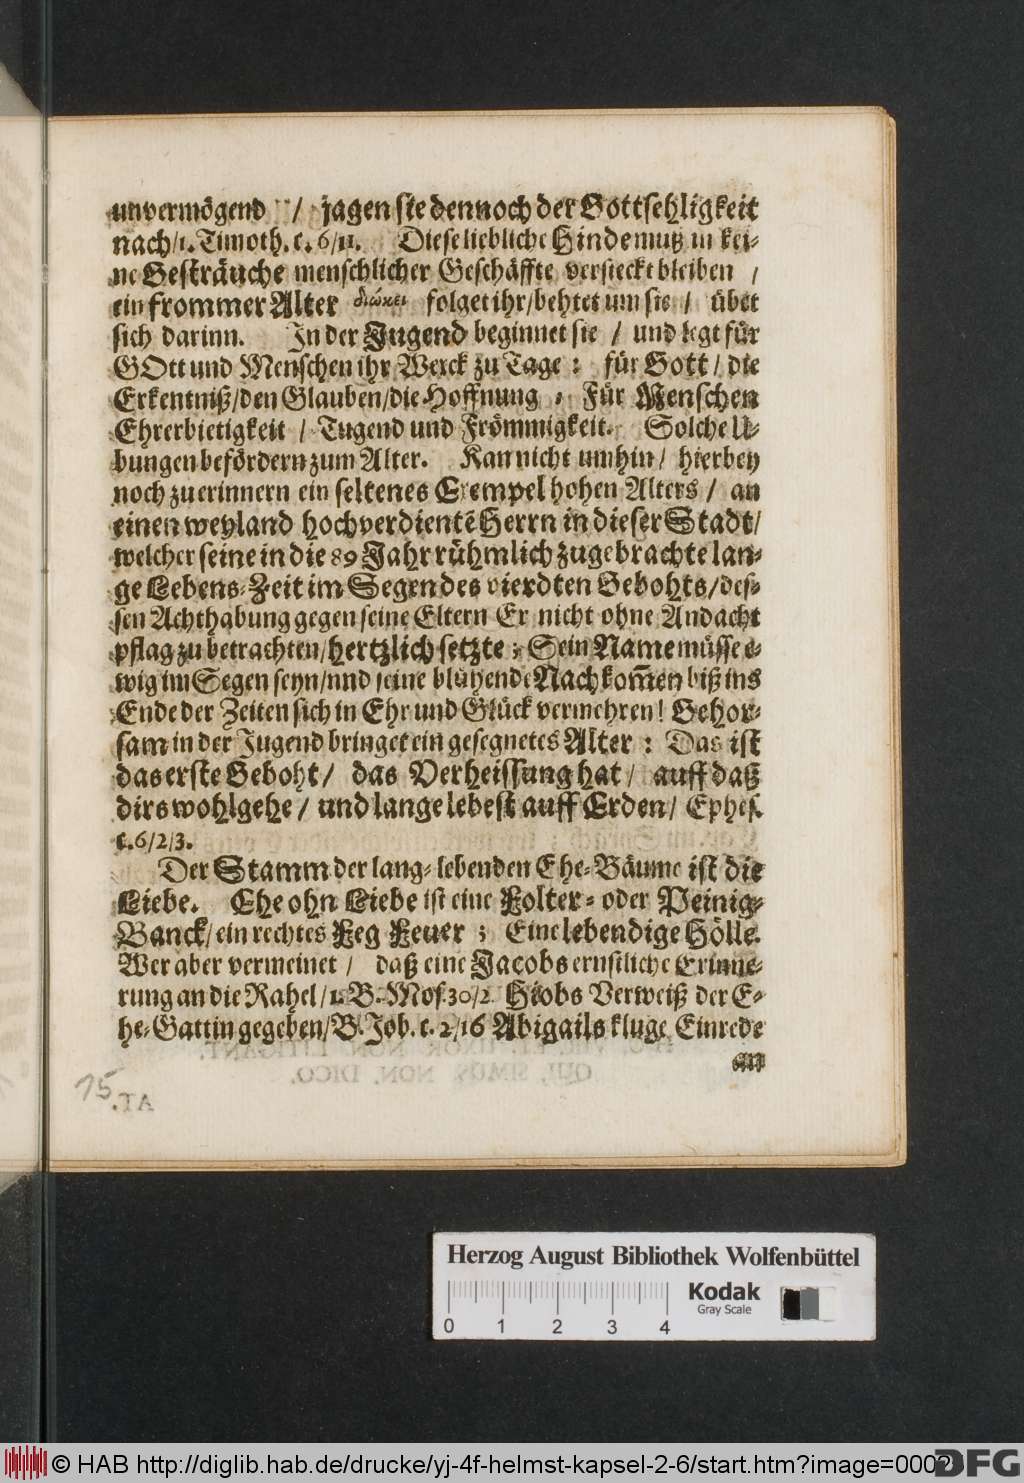 unvermögend / jagen sie dennoch der Gottsehligkeit
nach/1. Timoth. c. 6/11. Diese liebliche Hinde muß in kei-
ne Gesträuche menschlicher Geschäffte versteckt bleiben /
ein frommer Alter διώκει folget ihr/behtet um sie / übet
sich darinn. In der Jugend beginnet sie / und legt für
GOtt und Menschen ihr Werck zu Tage: für Gott / die
Erkentniß/den Glauben/die Hoffnung, Für Menschen
Ehrerbietigkeit / Tugend und Frömmigkeit. Solche U-
bungen befördern zum Alter. Kan nicht umhin / hierbey
noch zu erinnern ein seltenes Exempel hohen Alters / an
einen weyland hochverdientē Herrn in dieser Stadt/
welcher seine in die 89 Jahr rühmlich zugebrachte lan-
ge Lebens-Zeit im Segen des vierdten Gebohts/des-
sen Achthabung gegen seine Eltern Er nicht ohne Andacht
pflag zu betrachten/hertzlich setzte: Sein Name müsse e-
wig im Segen seyn/und seine blühende Nachkom̄en biß ins
Ende der Zeiten sich in Ehr und Glück vermehren! Gehor-
sam in der Jugend bringet ein gesegnetes Alter: Das ist
das erste Geboht/ das Verheissung hat/ auff daß
dirs wohlgehe/ und lange lebest auff Erden/ Ephes.
c.6/2/3.
Der Stamm der lang-lebenden Ehe-Bäume ist die
Liebe. Ehe ohn Liebe ist eine Folter- oder Peinig-
Banck/ein rechtes Feg Feuer; Eine lebendige Hölle.
Wer aber vermeinet / daß eine Jacobs ernstliche Erinne-
rung an die Rahel/1. B. Mos. 30/2 Hiobs Verweiß der E-
he-Gattin gegeben/B. Job. c. 2/16 Abigails kluge Einrede
an
15.
Herzog August Bibliothek Wolfenbüttel
0 1 2 3 4
Kodak
Gray Scale
© HAB http://diglib.hab.de/drucke/yj-4f-helmst-kapsel-2-6/start.htm?image=0002
DFG